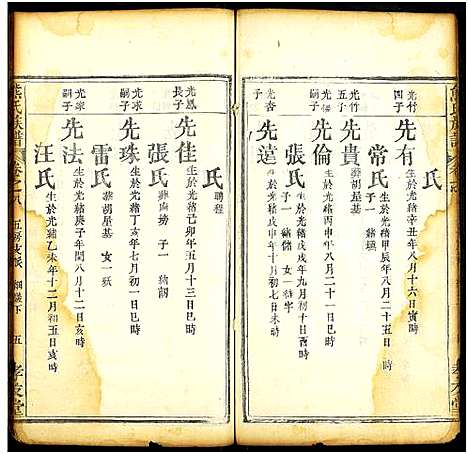 熊氏族譜
光竹
四子
先有
生於光緒辛丑年八月十六日寅時
氏
光竹
五子
先貴
生於光緒甲辰年八月二十五日
常氏
葬胡星基
子一
緒
先倫
生於光緒丙申年八月二十一日巳時
張氏
生於光緒戊戌年九月初七日辰時
子一
緒
女一
光杏
子
先達
生於光緒辛卯年十月初七日未時
孝友堂
氏
聘程
光鳳
長子
先佳
生於光緒己卯年五月十三日巳時
張氏
子一
緒
光求
嗣子
先珠
生於光緒丁亥年七月初一日巳時
雷氏
葬胡星基
女一
光求
嗣子
先法
生於光緒庚子年閏八月十二日亥時
汪氏
生於光緒乙未年十二月初五日亥時
熊氏族譜
卷之八
五房
下
五
孝友堂